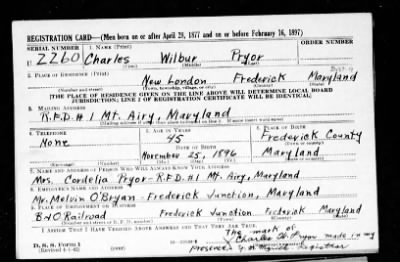 REGISTRATION CARD—(Men born on or after April 28, 1877 and on or before February 16, 1897)
SERIAL NUMBER 1. NAME (Print) ORDER NUMBER
U 2260 Charles Wilbur Pryor
(First) (Middle) (Last)
2. PLACE OF RESIDENCE (Print)
New London Frederick Maryland
(Number and street) (Town, township, village, or city) (County) (State)
[THE PLACE OF RESIDENCE GIVEN ON THE LINE ABOVE WILL DETERMINE LOCAL BOARD
JURISDICTION; LINE 2 OF REGISTRATION CERTIFICATE WILL BE IDENTICAL]
3. MAILING ADDRESS
R.F.D. #1 Mt. Airy, Maryland
[Mailing address if other than place indicated on line 2. If same insert word same]
4. TELEPHONE 5. AGE IN YEARS 6. PLACE OF BIRTH
None 45 Frederick County
DATE OF BIRTH
November 25, 1896 Maryland
(Exchange) (Number) (Mo.) (Day) (Yr.) (State or country)
7. NAME AND ADDRESS OF PERSON WHO WILL ALWAYS KNOW YOUR ADDRESS
Mrs. Cordelia Pryor - R.F.D. #1 Mt. Airy, Maryland
8. EMPLOYER'S NAME AND ADDRESS
Mr. Melvin O'Bryan - Frederick Junction, Maryland
9. PLACE OF EMPLOYMENT OR BUSINESS
B+O Railroad Frederick Junction Frederick Maryland
(Number and street or R. F. D. number) (Town) (County) (State)
I AFFIRM THAT I HAVE VERIFIED ABOVE ANSWERS AND THAT THEY ARE TRUE.
D. S. S. Form 1
(Revised 4-1-42)
The mark of
Charles W. Pryor made in my
presence Registrar